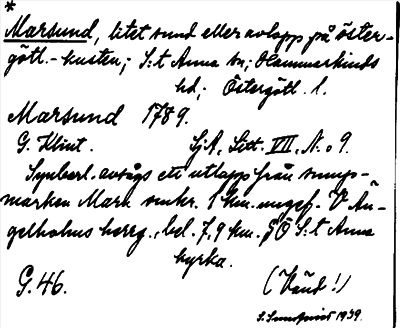 *
Marsund, litet sund eller avlopp på öster-
götl.-kusten; S:t Anna sn; Hammarkinds
hd; Östergötl. l.
Marsund 1789.
G. Klint. Sj.A, Litt. VII, N:o 9.
Synberl. avsågs ett utlopp från
marken Mark. 1 km. ungef. V Än-
gelholms herrg., bel. 7,9 km. S:t Anna
kyrka.
G. 46. (Vänd!)
1939.